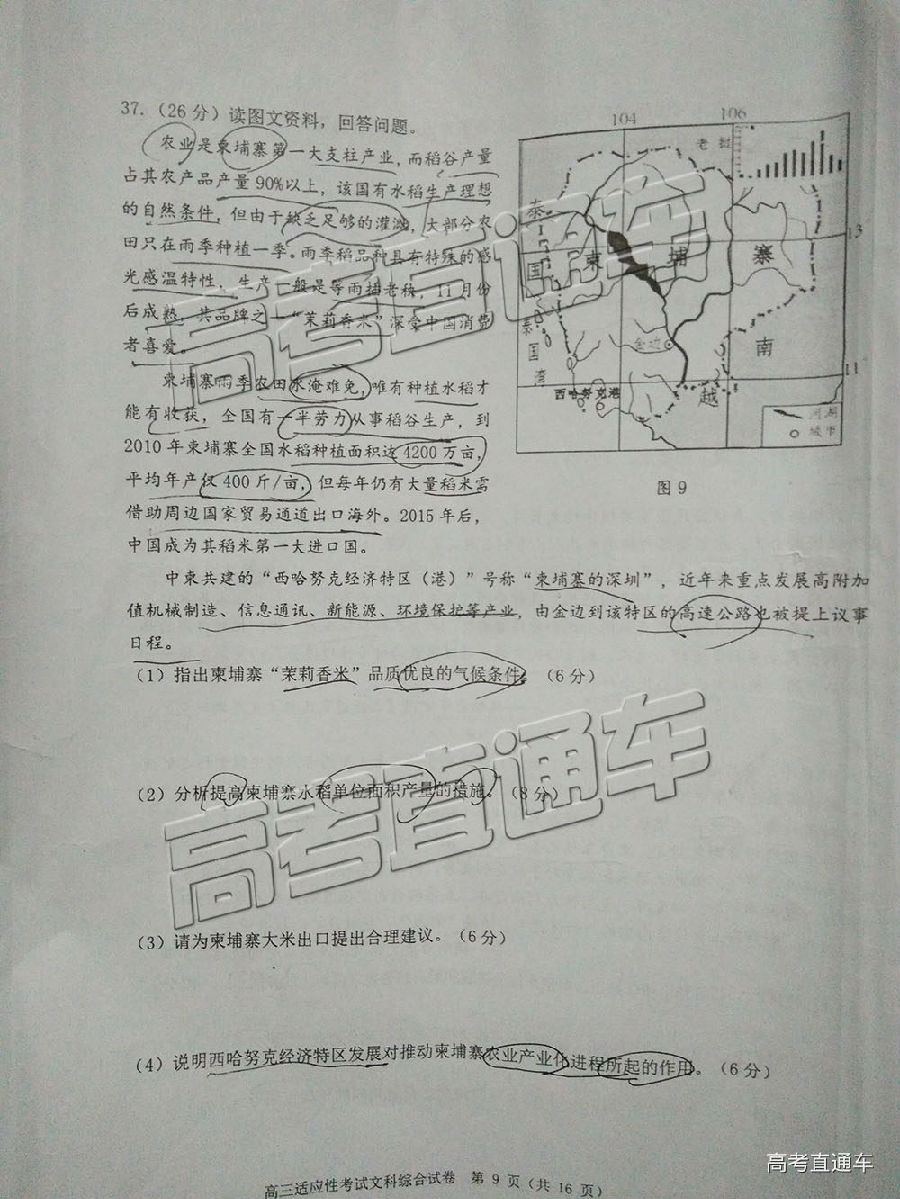 37.（26分）读图文资料，回答问题。
农业是柬埔寨第一大支柱产业，而稻谷产量
占其农产品产量90%以上，该国有水稻生产理想
的自然条件，但由于缺乏足够的灌溉，大部分农
田只在雨季种植一季。雨季稻品种具有特殊的感
光感温特性，生产一般是等雨插老秧，11月份
后成熟，其品牌之一“茉莉香米”深受中国消费
者喜爱。
柬埔寨雨季农田水淹难免，唯有种植水稻才
能有收获，全国有一半劳力从事稻谷生产，到
2010年柬埔寨全国水稻种植面积达4200万亩，
平均年产仅400斤/亩，但每年仍有大量稻米需
借助周边国家贸易通道出口海外。2015年后，
中国成为其稻米第一大进口国。
104
106
老挝
泰
国
柬埔寨
13
泰国湾
金边
西哈努克港
越
南
11
河湖
城市
图9
中柬共建的“西哈努克经济特区（港）”号称“柬埔寨的深圳”，近年来重点发展高附加
值机械制造、信息通讯、新能源、环境保护等产业，由金边到该特区的高速公路也被提上议事
日程。
（1）指出柬埔寨“茉莉香米”品质优良的气候条件。（6分）
（2）分析提高柬埔寨水稻单位面积产量的措施。（8分）
（3）请为柬埔寨大米出口提出合理建议。（6分）
（4）说明西哈努克经济特区发展对推动柬埔寨农业产业化进程所起的作用。（6分）
高三适应性考试文科综合试卷 第9页（共16页）
高考直通车
高考直通车
高考直通车